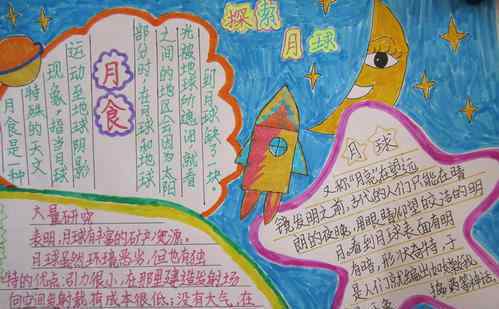 探索
月球
月食
月食是一种
特殊的天文
现象,指当月球
运动至地球阴影
部分时,在月球和地球
之间的地区会因为太阳
光被地球所遮闭,就看
到月球缺了一块。
月球
又称"月亮"在望远
镜发明之前,古代的人们只能在晴
朗的夜晚,用眼睛仰望皎洁的明
月看到月球表面有明
有暗,形状奇特,于
是人们就编出如嫦娥
捣药等神话
大量研究
表明,月球有丰富的矿产资源。
月球虽然环境恶劣,但也有独
特的优点,引力很小,在那里建造发射场
向空间发射载有成本很低;没有大气,在